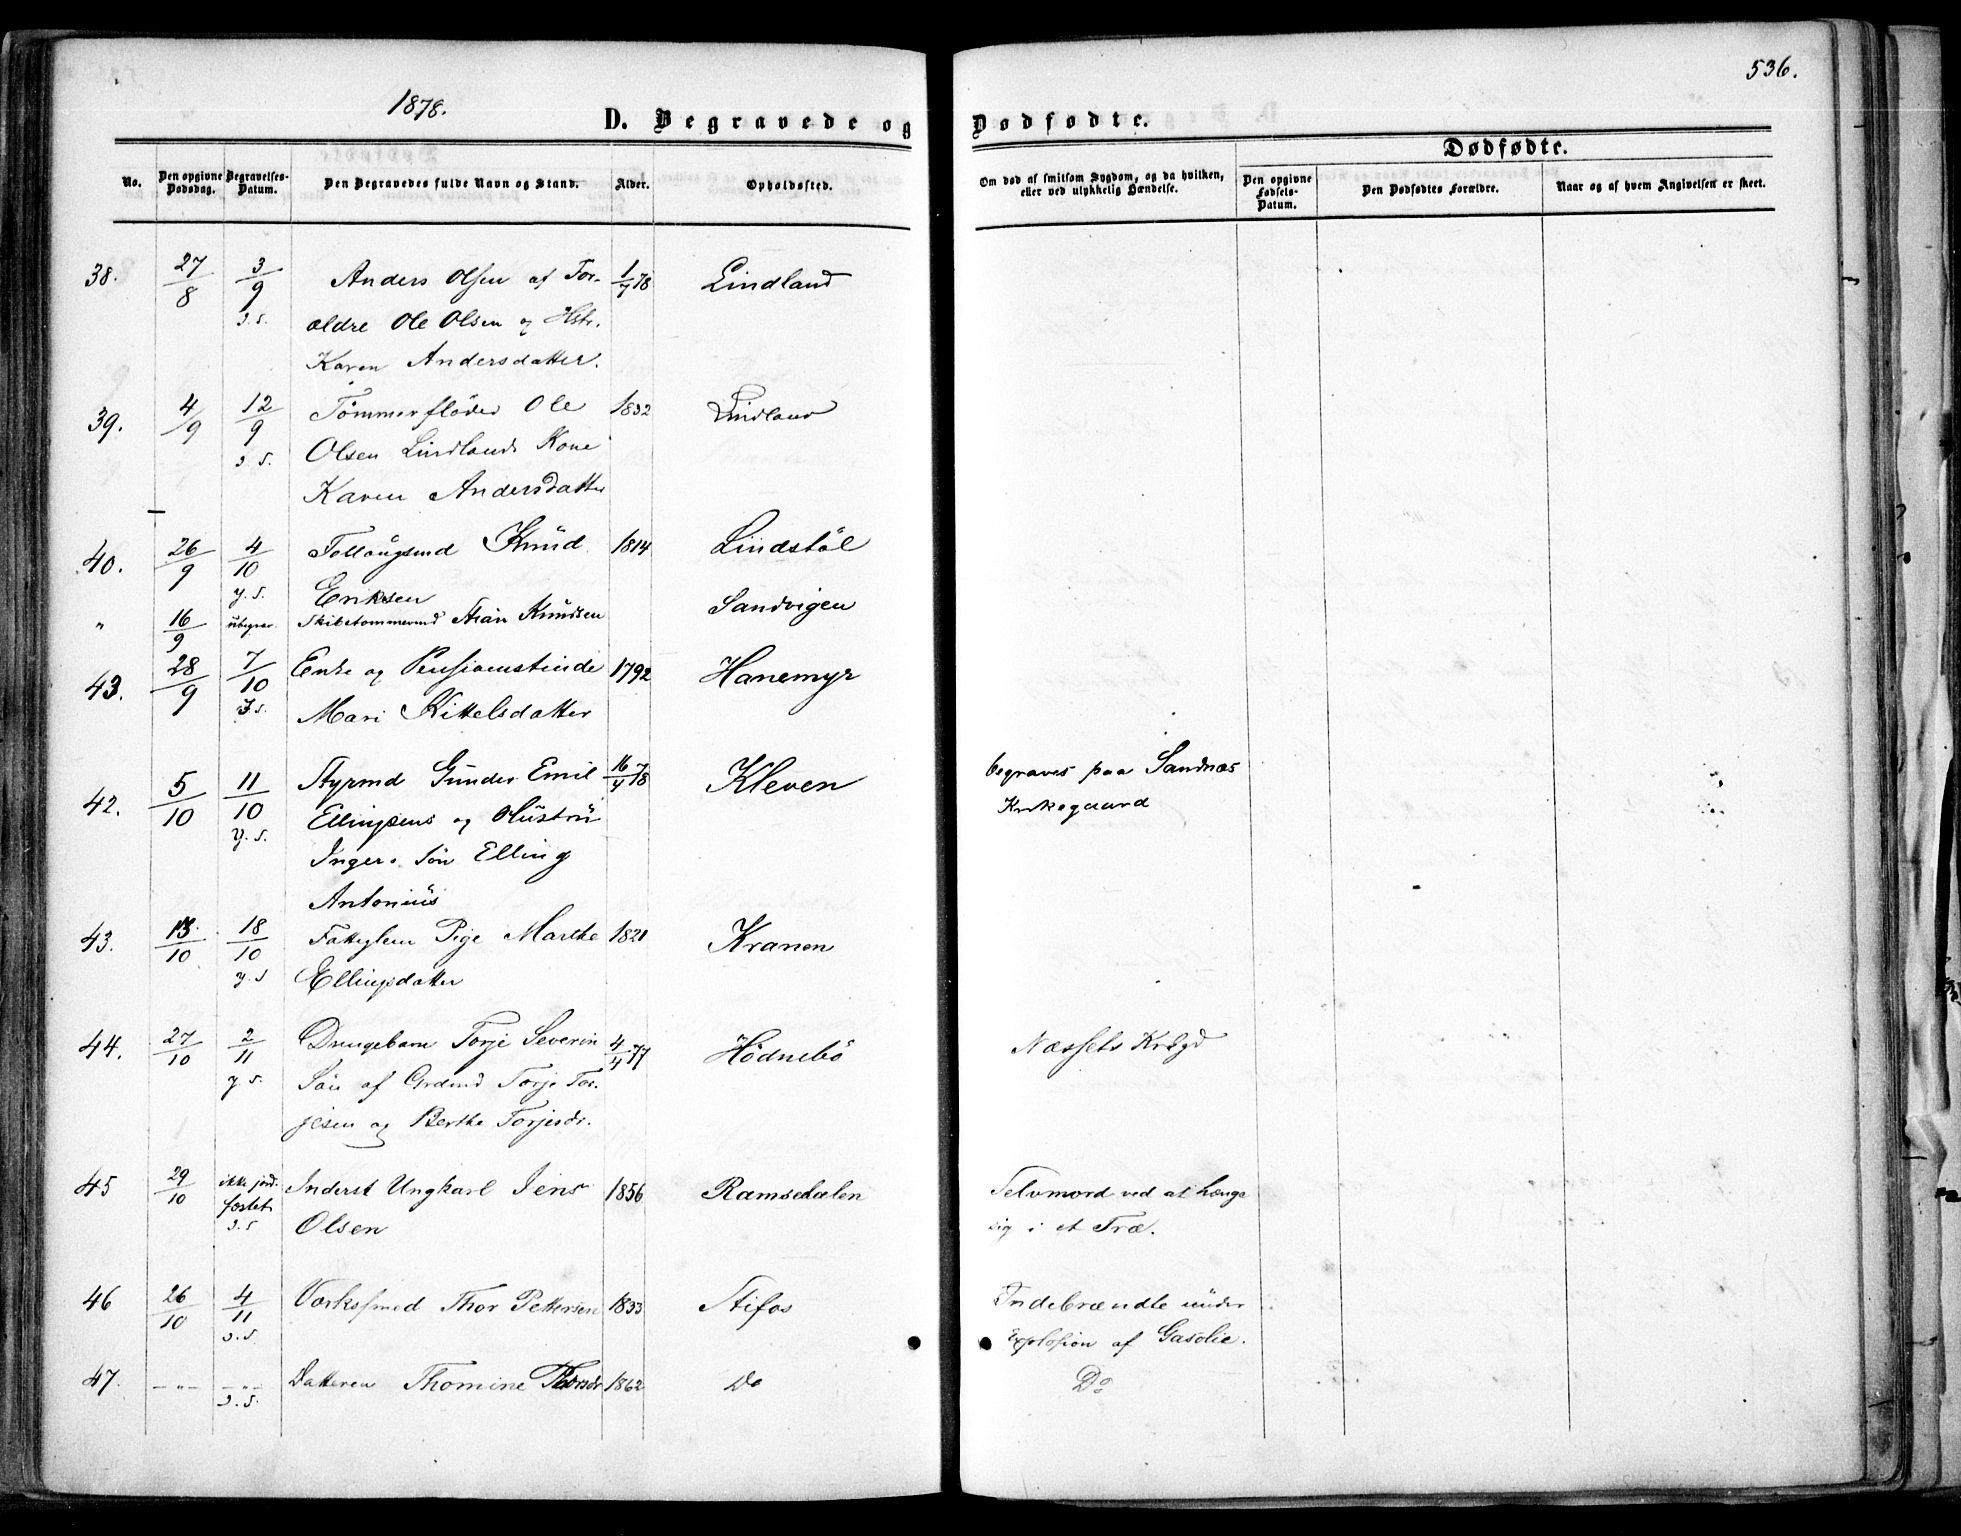 536.
1878.
D. Begravede og Dødfødte.
Dødfødte.
No.
Den opgivne Dødsdag.
Begravelses-Datum.
Den Begravedes fulde Navn og Stand.
Alder.
Opholdssted.
Om død af smitsom Sygdom, og da hvilken, eller ved ulykkelig Hændelse.
Den opgivne Fødsels-Datum.
Den Dødfødtes Forældre.
Naar og af hvem Angivelsen er skeet.
38. 27/8 3/9 Anders Olsen af For- 1/7 78 Lindland
J. S. ældre Ole Olsen og Hstr.
Karen Andersdatter.
39. 4/9 12/9 Tømmerfløder Ole 1832 Lindland
J. S. Olsen Lindlands Kone
Karen Andersdatter
40. 26/9 4/10 Knud 1814 Lindstöl
y. S. Eriksen
" 16/9 ubegrav. Skibstømmermd Knudsen Sandvigen
43. 28/9 7/10 Enke og 1792 Hanemyr
J. S. Mari Kittelsdatter
42. 5/10 11/10 Styrmd Gunder Emil 16/4 78 Kleven begraves paa Sandnæs
y. S. Ellingsens og Hustru Kirkegaard
Inger. Søn Elling
Antonius
43. 13/10 18/10 Pige Marthe 1821 Kranen
y. S Ellingsdatter
44. 27/10 2/11 Drengebarn Torje Severin 4/4 77 Hödnebö Næssets
y. S. Søn af Grdmd Torje Tor-
jesen og Berthe Torjesdr.
45 29/10 ikke jord- Inderst Ungkarl Jens 1856 Ramsdalen Selvmord ved at hænge
fæstet Olsen sig i et Træ.
J. S
46 26/10 4/11 Thor Pettersen 1833 Stifos Indebrændte under
J. S. Explosion af Gasolie.
47. - " - - " - Datteren Thomine Thorsdr 1862 Do Do
J. S.